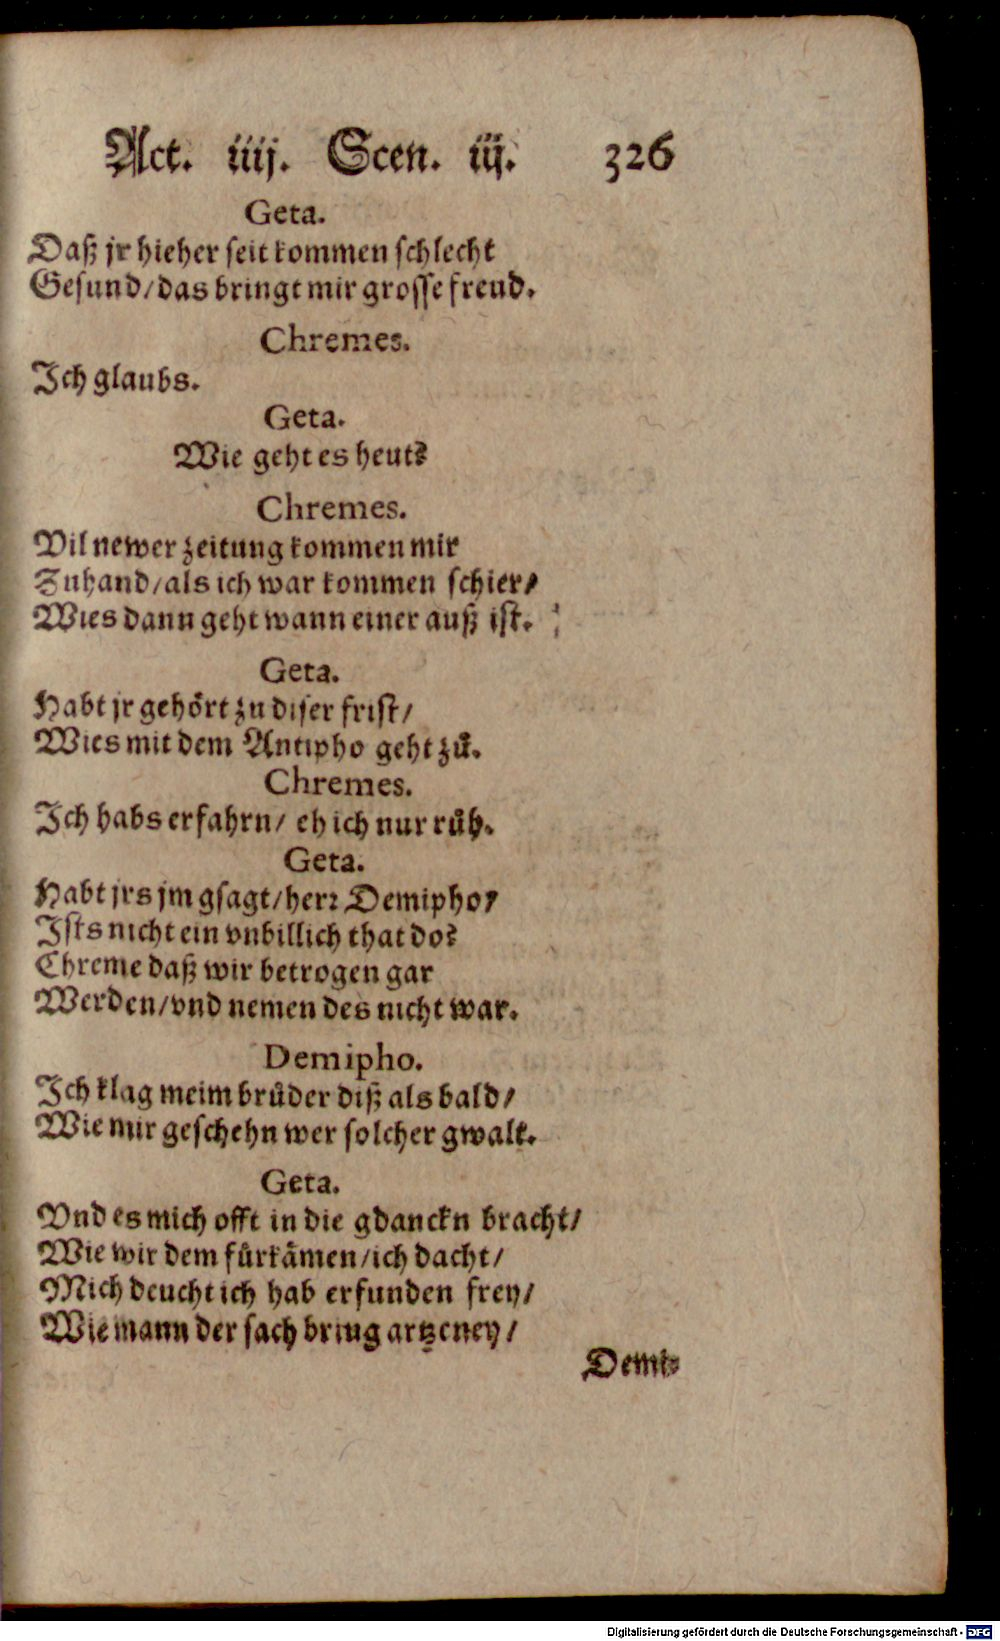 Act. iiij. Scen. iij. 326
Geta.
Daß jr hieher seit kommen schlecht
Gesund/das bringt mir grosse freud.
Chremes.
Ich glaubs.
Geta.
Wie geht es heut?
Chremes.
Vil newer zeitung kommen mir
Zuhand/als ich war kommen schier/
Wies dann geht wann einer auß ist.
Geta.
Habt jr gehört zu diser frist/
Wies mit dem Antipho geht zů.
Chremes.
Ich habs erfahrn/ eh ich nur růh.
Geta.
Habt jrs jm gsagt/herr Demipho?
Ists nicht ein vnbillich that do?
Chreme daß wir betrogen gar
Werden/vnd nemen des nicht war.
Demipho.
Ich klag meim brůder diß als bald/
Wie mir geschehn wer solcher gwalt.
Geta.
Vnd es mich offt in die gdanckn bracht/
Wie wir dem fürkämen/ich dacht/
Mich deucht ich hab erfunden frey/
Wie mann der sach bring artzeney/
Demi-
Digitalisierung gefördert durch die Deutsche Forschungsgemeinschaft - DFG